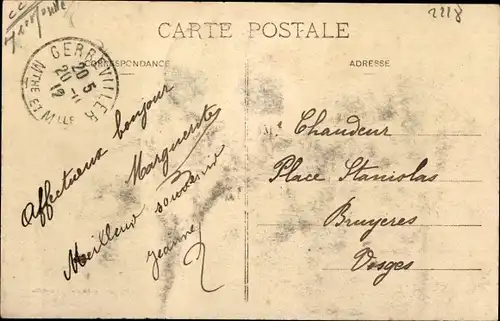 2218
CARTE POSTALE
CORRESPONDANCE
ADRESSE
GERBÉVILLER
20 5
20 -11
12
MTHE ET MLLE
Affectueux bonjour
Marguerite
Meilleur souvenir
Jeanne
Chandeur
Place Stanislas
Bruyeres
Vosges